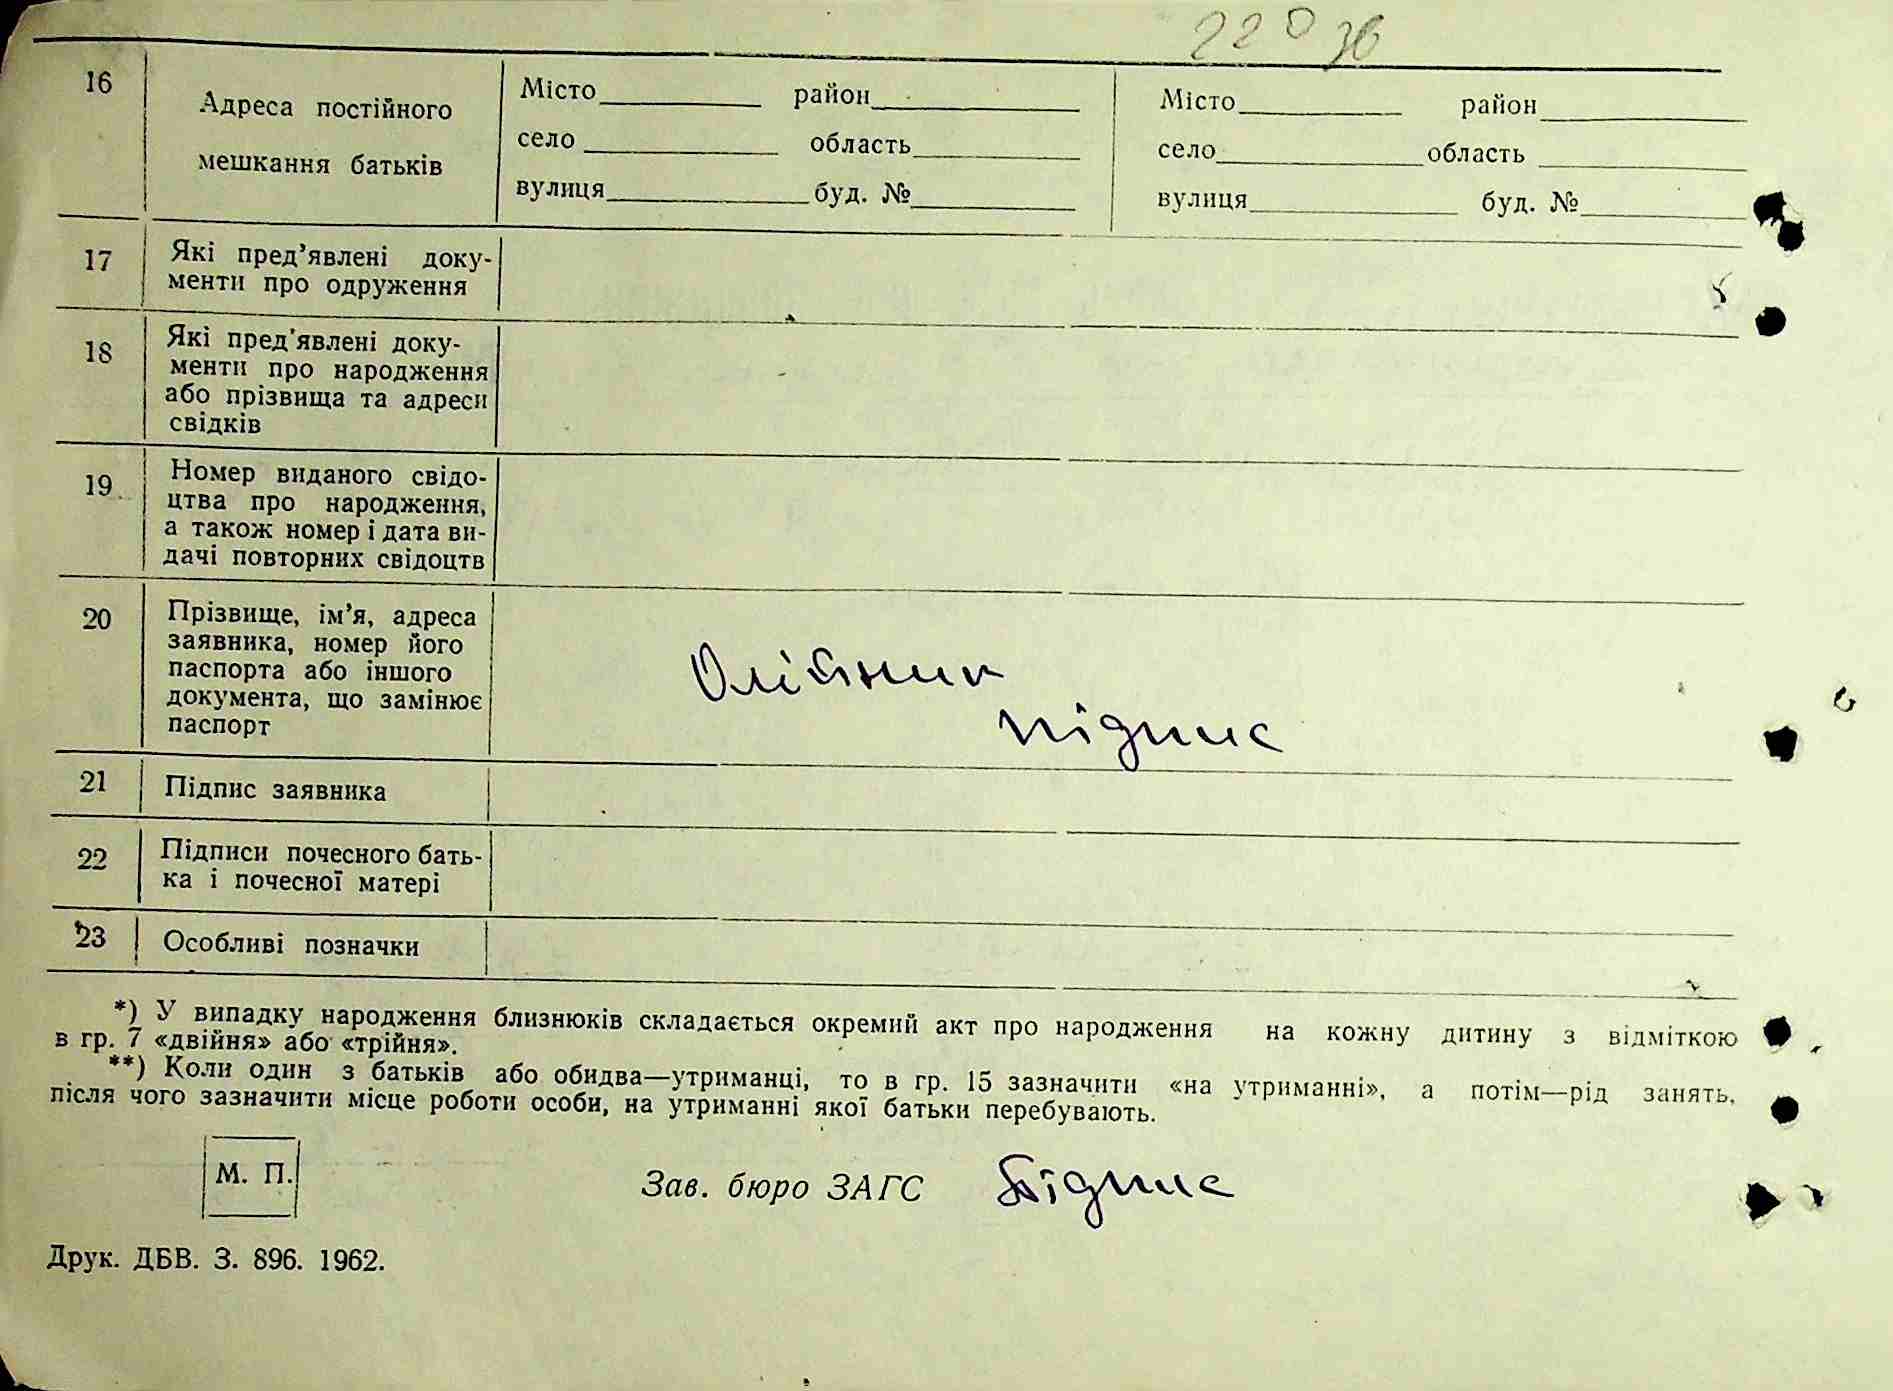 16 Адреса постійного мешкання батьків
Місто район
село область
вулиця буд. №
Місто район
село область
вулиця буд. №
17 Які пред’явлені доку-
менти про одруження
18 Які пред’явлені доку-
менти про народження
або прізвища та адреси
свідків
19 Номер виданого свідо-
цтва про народження,
а також номер і дата ви-
дачі повторних свідоцтв
20 Прізвище, ім’я, адреса
заявника, номер його
паспорта або іншого
документа, що замінює
паспорт
Олійник
підпис
21 Підпис заявника
22 Підписи почесного бать-
ка і почесної матері
23 Особливі позначки
*) У випадку народження близнюків складається окремий акт про народження на кожну дитину з відміткою
в гр. 7 «двійня» або «трійня».
**) Коли один з батьків або обидва—утриманці, то в гр. 15 зазначити «на утриманні», а потім—рід занять,
після чого зазначити місце роботи особи, на утриманні якої батьки перебувають.
М. П.
Зав. бюро ЗАГС Підпис
Друк. ДБВ. З. 896. 1962.